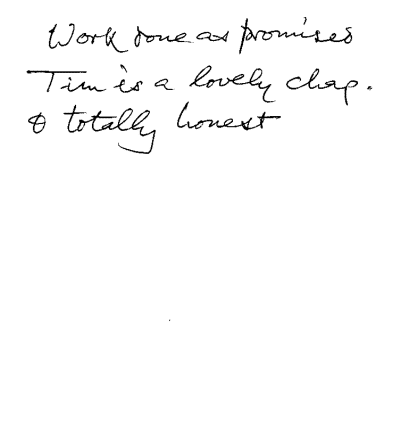 Work done as promised
Tim is a lovely chap.
& totally honest